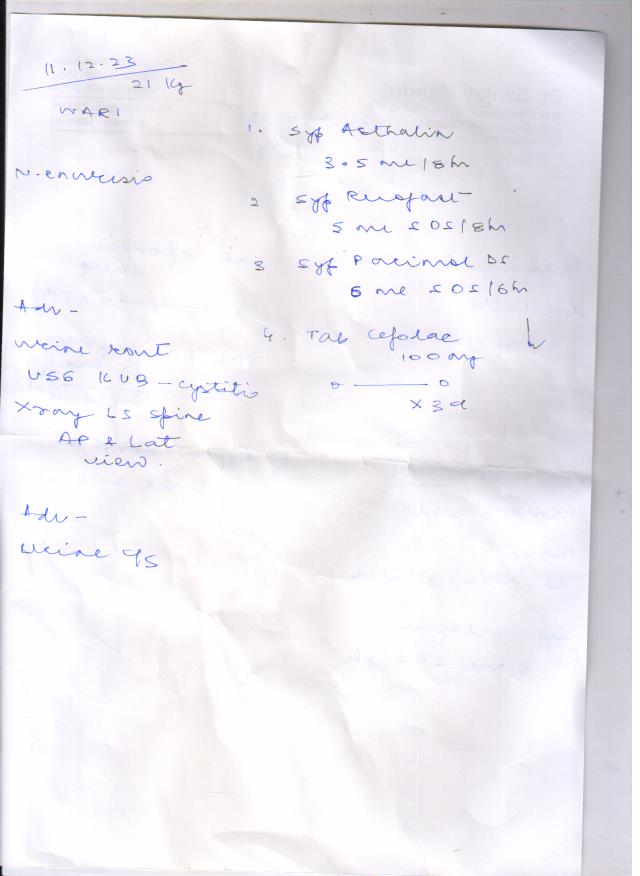 11.12.23
21 Kg
WARI
N. enuresis
Adv -
Urine rout
USG KUB - cystitis
Xray LS spine
AP & Lat
view.
Adv -
Urine C/S
1. Syp Asthalin
3.5 ml / 8hr
2 Syp
5 ml SOS / 8hr
3 Syp Pacimol DS
6 ml SOS / 6hr
4. Tab Cefolac
100 mg
0 ——— 0
x 3 d